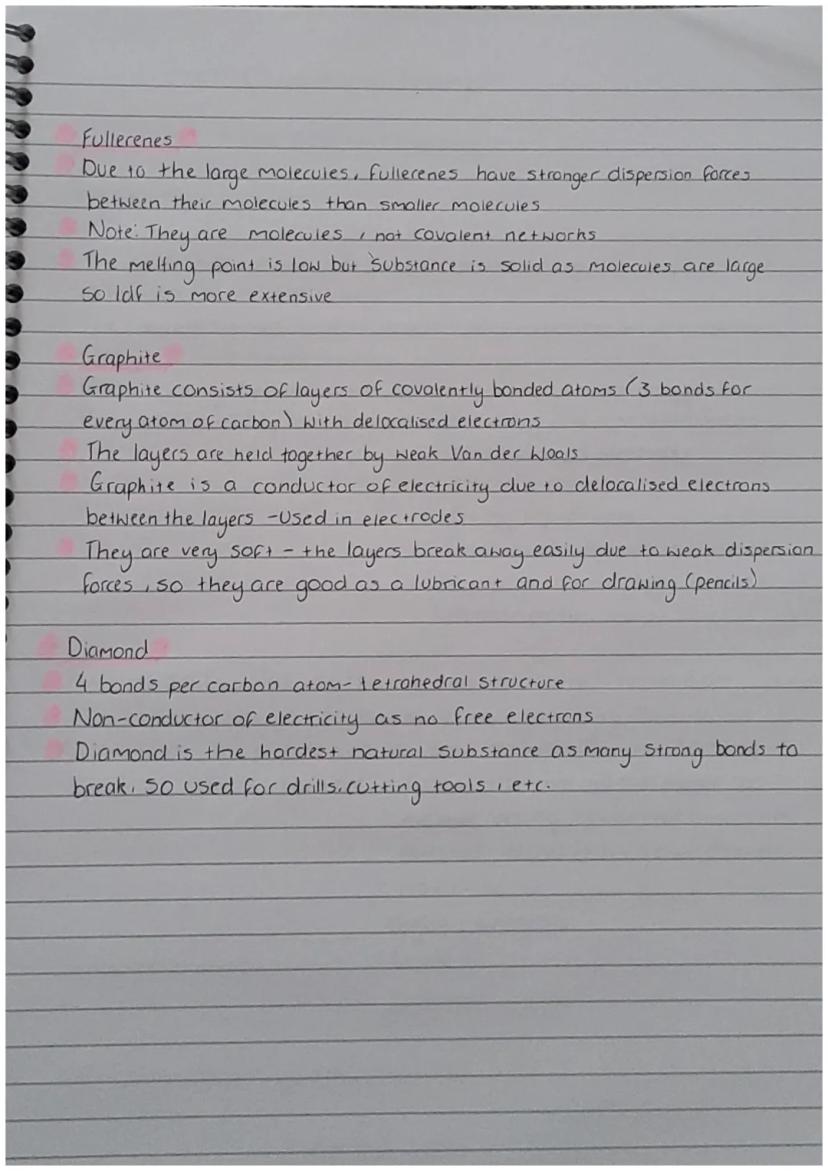 Fullerenes
Due to the large molecules, fullerenes have stronger dispersion forces
between their molecules than smaller molecules
Note: They are molecules, not covalent networks
The melting point is low but substance is solid as molecules are large
so ldf is more extensive
Graphite
Graphite consists of layers of covalently bonded atoms (3 bonds for
every atom of carbon) with delocalised electrons
The layers are held together by weak Van der Waals
Graphite is a conductor of electricity due to delocalised electrons
between the layers - used in electrodes
They are very soft - the layers break away easily due to weak dispersion
forces, so they are good as a lubricant and for drawing (pencils)
Diamond
4 bonds per carbon atom - tetrahedral structure
Non-conductor of electricity as no free electrons
Diamond is the hardest natural substance as many strong bonds to
break, so used for drills, cutting tools, etc.